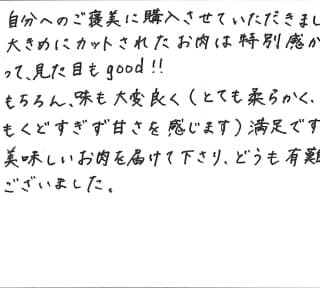 自分へのご褒美に購入させていただきまし
大きめにカットされたお肉は特別感か
って、見た目もgood!!
もちろん、味も大変良く(とても柔らかく、
もくどすぎず甘さを感じます)満足です
美味しいお肉を届けて下さり、どうも有難
ございました。